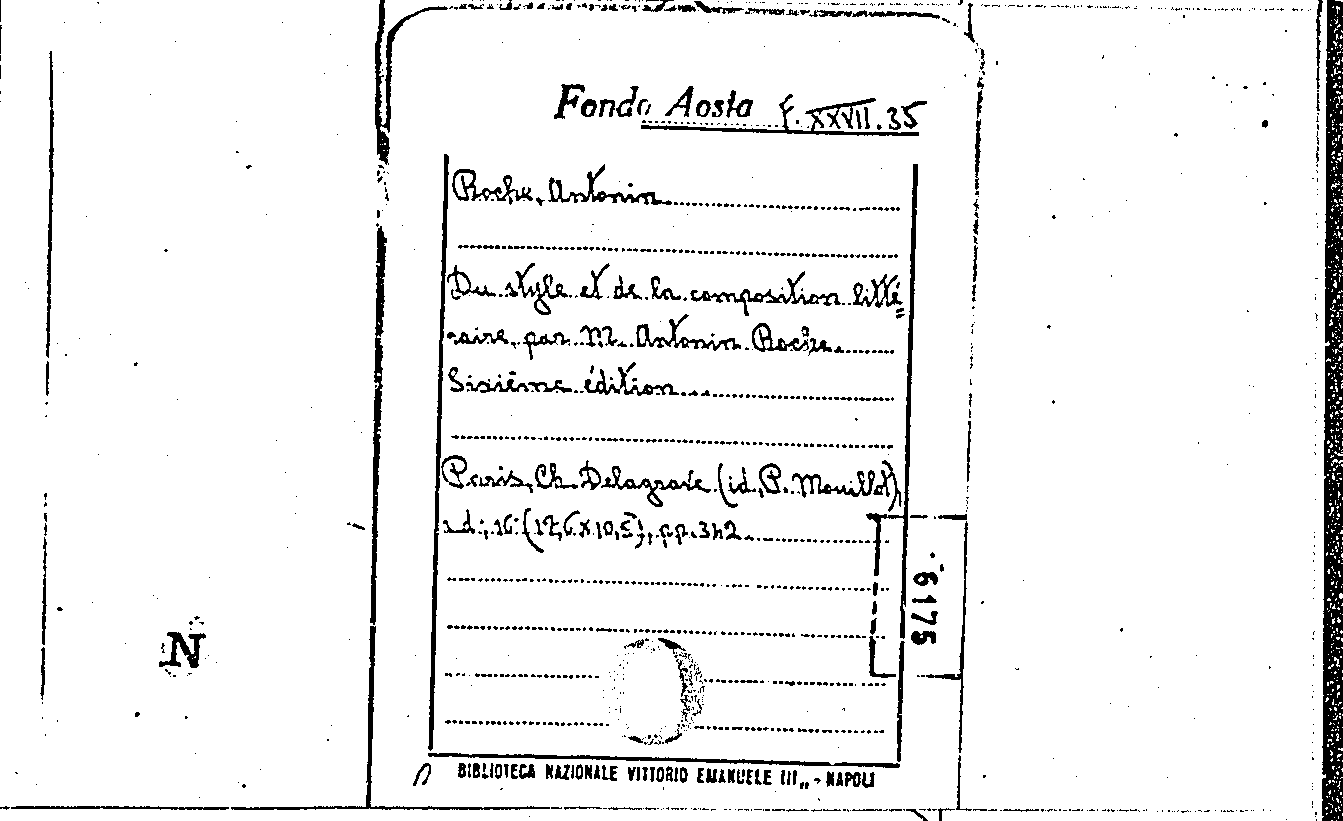 Fondo Aosta F. XXVII. 35
Roche, Antonin
Du style et de la composition litté
raire, par M. Antonin Roche.
Sixième édition...
Paris, Ch. Delagrave (id., P. Mouillot),
s. d., 16º (17,6 x 10,5), pp. 342
6175
N
BIBLIOTECA NAZIONALE VITTORIO EMANUELE III„ - NAPOLI